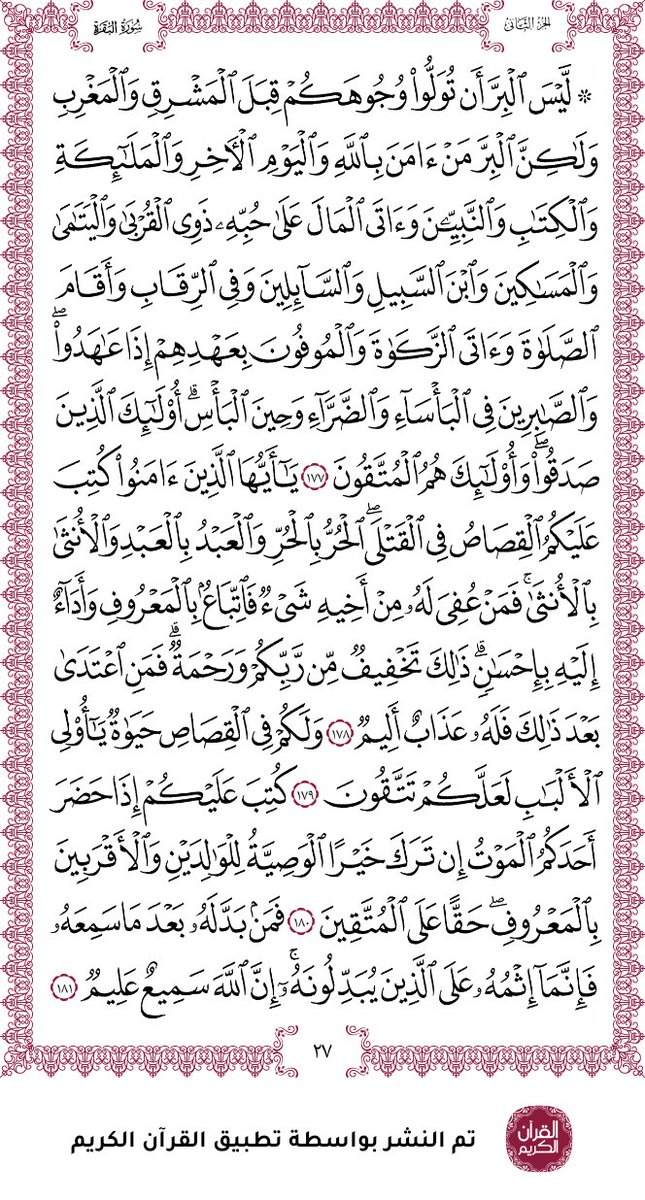 الجزء الثاني
سورة البقرة
۞ لَّيْسَ ٱلْبِرَّ أَن تُوَلُّوا۟ وُجُوهَكُمْ قِبَلَ ٱلْمَشْرِقِ وَٱلْمَغْرِبِ
وَلَٰكِنَّ ٱلْبِرَّ مَنْ ءَامَنَ بِٱللَّهِ وَٱلْيَوْمِ ٱلْأَخِرِ وَٱلْمَلَٰٓئِكَةِ
وَٱلْكِتَٰبِ وَٱلنَّبِيِّـۧنَ وَءَاتَى ٱلْمَالَ عَلَىٰ حُبِّهِۦ ذَوِى ٱلْقُرْبَىٰ وَٱلْيَتَٰمَىٰ
وَٱلْمَسَٰكِينَ وَٱبْنَ ٱلسَّبِيلِ وَٱلسَّآئِلِينَ وَفِى ٱلرِّقَابِ وَأَقَامَ
ٱلصَّلَوٰةَ وَءَاتَى ٱلزَّكَوٰةَ وَٱلْمُوفُونَ بِعَهْدِهِمْ إِذَا عَٰهَدُوا۟ۖ
وَٱلصَّٰبِرِينَ فِى ٱلْبَأْسَآءِ وَٱلضَّرَّآءِ وَحِينَ ٱلْبَأْسِۗ أُو۟لَٰٓئِكَ ٱلَّذِينَ
صَدَقُوا۟ۖ وَأُو۟لَٰٓئِكَ هُمُ ٱلْمُتَّقُونَ ١٧٧ يَٰٓأَيُّهَا ٱلَّذِينَ ءَامَنُوا۟ كُتِبَ
عَلَيْكُمُ ٱلْقِصَاصُ فِى ٱلْقَتْلَىۖ ٱلْحُرُّ بِٱلْحُرِّ وَٱلْعَبْدُ بِٱلْعَبْدِ وَٱلْأُنثَىٰ
بِٱلْأُنثَىٰۚ فَمَنْ عُفِىَ لَهُۥ مِنْ أَخِيهِ شَىْءٌ فَٱتِّبَاعٌۢ بِٱلْمَعْرُوفِ وَأَدَآءٌ
إِلَيْهِ بِإِحْسَٰنٍۗ ذَٰلِكَ تَخْفِيفٌ مِّن رَّبِّكُمْ وَرَحْمَةٌۗ فَمَنِ ٱعْتَدَىٰ
بَعْدَ ذَٰلِكَ فَلَهُۥ عَذَابٌ أَلِيمٌ ١٧٨ وَلَكُمْ فِى ٱلْقِصَاصِ حَيَوٰةٌ يَٰٓأُو۟لِى
ٱلْأَلْبَٰبِ لَعَلَّكُمْ تَتَّقُونَ ١٧٩ كُتِبَ عَلَيْكُمْ إِذَا حَضَرَ
أَحَدَكُمُ ٱلْمَوْتُ إِن تَرَكَ خَيْرًا ٱلْوَصِيَّةُ لِلْوَٰلِدَيْنِ وَٱلْأَقْرَبِينَ
بِٱلْمَعْرُوفِۖ حَقًّا عَلَى ٱلْمُتَّقِينَ ١٨٠ فَمَنۢ بَدَّلَهُۥ بَعْدَ مَا سَمِعَهُۥ
فَإِنَّمَآ إِثْمُهُۥ عَلَى ٱلَّذِينَ يُبَدِّلُونَهُۥٓۚ إِنَّ ٱللَّهَ سَمِيعٌ عَلِيمٌ ١٨١
٢٧
القرآن
الكريم
تم النشر بواسطة تطبيق القرآن الكريم